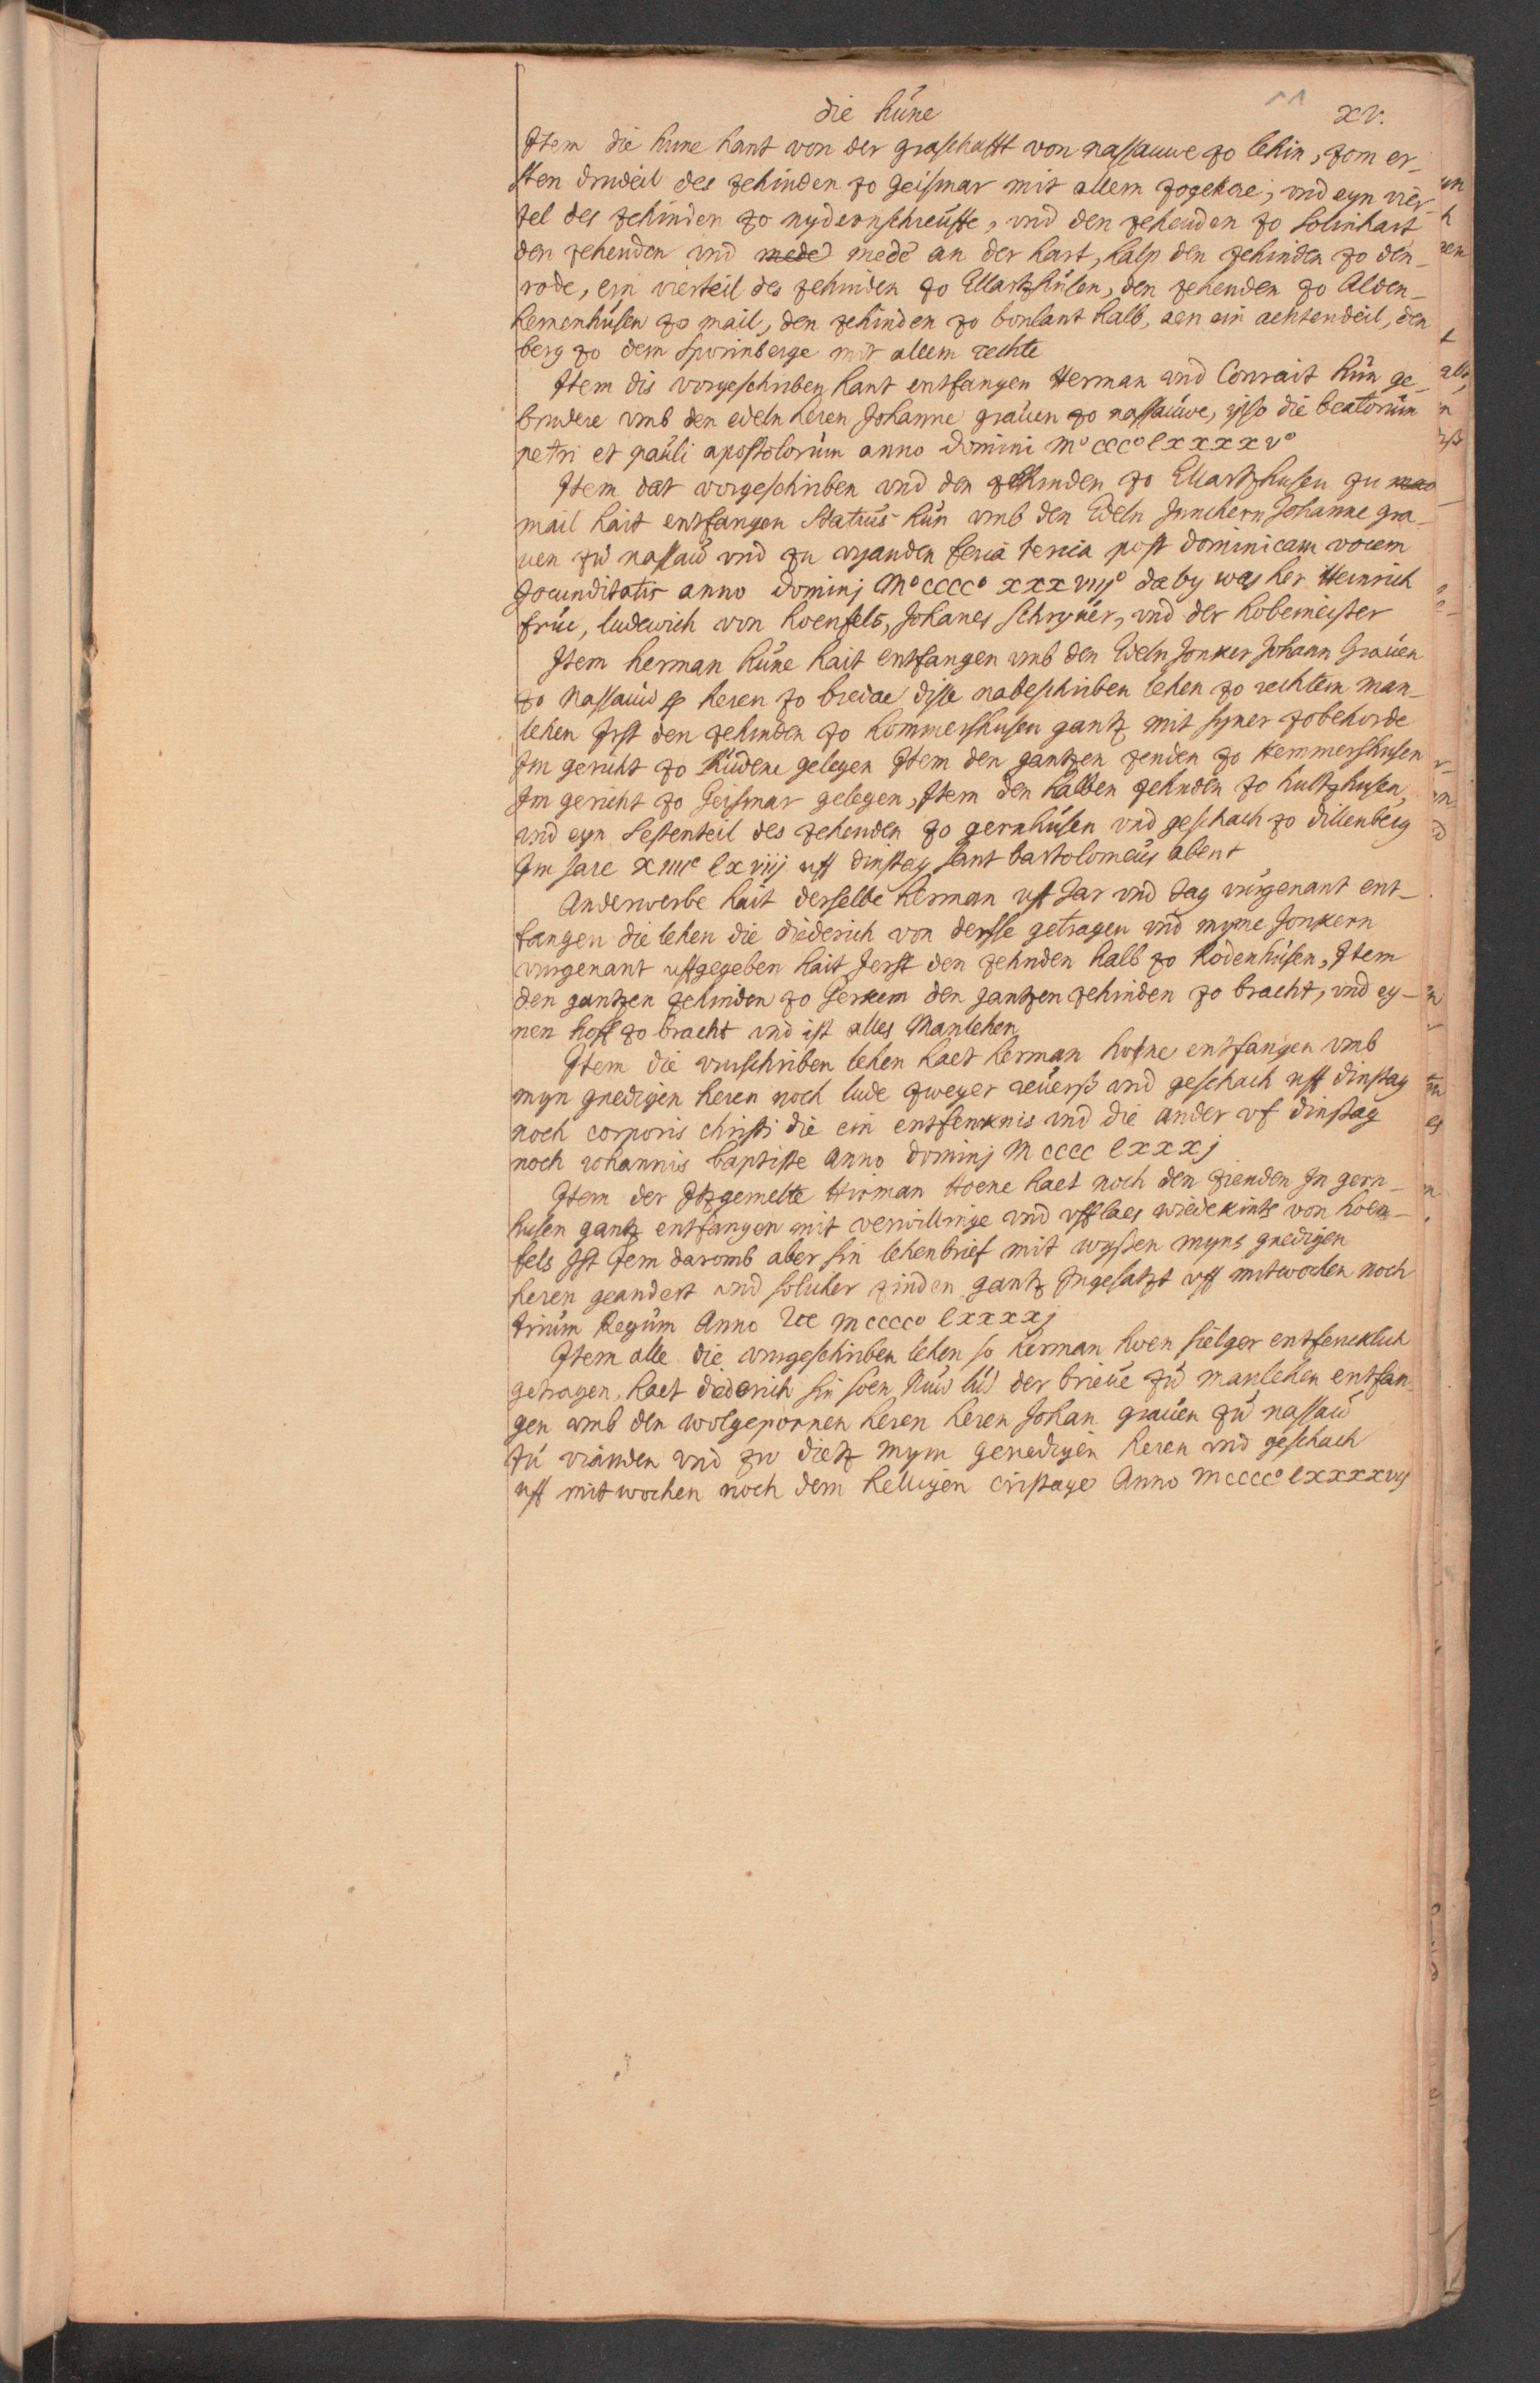 die hüne 11 xv.
Item die hune hant von der graschafft von nassauwe zo lehin, zom er-
sten drudeil des zehinden zo geismar mit allem zogehore, vnd eyn vier-
tel des zehinden zo nydernschreuffe, vnd den zehenden zo solinhart
den zehenden vnd mede mede an der hart, halp den zehinden zo den-
rode, eyn vierteil des zehinden zo Ellartzhusen, den zehenden zo Alden-
hemenhusen zo mail, den zehinden zo bonlant halb, aen ein achtendeil, den
berg zo dem sporinberge mit allem rechte
Item dis vorgeschriben hant entfangen Herman vnd Conrait hün ge-
brudere vmb den edeln heren Johanne grauen zo nassauwe, ipso die beatorum
petri et pauli apostolorum anno domini Mº cccº lxxxxvº
Item dat vorgeschriben vnd den zehinden zo Ellartzhusen zu
mail hait entfangen Statius hün vmb den Edeln Junchern Johanne gra-
uen zu nassau vnd zu vyanden feria tercia post dominicam vocem
Jocunditatis anno dominj Mº ccccº xxxviijº da by was her Heinrich
frie, ludewich von hoenfels, Johanes schryuer, vnd der hobemeister
Item herman hüne hait entfangen vmb den Edeln Jonker Johann Grauen
zo Nassauw heren zo bredae disse nabeschriben lehen zo rechtem man-
lehen Irst den zehinden zo hommershusen gantz mit syner zobehorde
Im gericht zo Rüdene gelegen Item den gantzen zenden zo Hemmershusen
Im gericht zo Geismar gelegen, Item den halben zehnden zo hultzhusen,
vnd eyn sestenteil des zehenden zo gernhusen vnd geschach zo dillenberg
Im Jare xiiiic lxviij uff dinstag sant bartolomeus abent
Anderwerbe hait derselbe herman uff Jar vnd tag vurgenant ent-
fangen die lehen die diederich von dersse getragen vnd myme Jonkern
vurgenant uffgegeben hait Jerst den zehnden halb zo Rodenhusen, Item
den gantzen zehinden zo serkem den gantzen zehinden zo bracht, vnd ey-
nen hoff zo bracht vnd ist alles Manlehen
Item die vurschriben lehen haet herman hoene entfangen vmb
myn gnedigen heren noch lude zweyer reuerß vnd geschach uff dinstag
noch corporis christi die ein entfenknis vnd die ander vf dinstag
noch Johannis baptiste Anno dominj M cccc lxxxj
Item der Itzgemelte Hirman Hoene haet noch den zienden In gern-
husen gantz entfangen mit verwillinge vnd vfflaes wiedekints von hoen-
fels Ist Jem daromb aber sin lehenbrief mit wyssen myns gnedigen
heren geandert vnd solicher zinden gantz Ingesatzt uff mitwochen noch
trium Regum Anno mccccº lxxxxj
Item alle die vurgeschriben lehen so herman hoen sielger entfencklich
getragen, haet diderich sin soen Nuw lüd der brieue zu manlehen entfan-
gen vmb den wolgepornnen heren heren Johan grauen zu nassau
zu vianden vnd zu dietz mym genedigen heren vnd geschach
uff mitwochen noch dem helligen cristage Anno Mccccº lxxxxvij